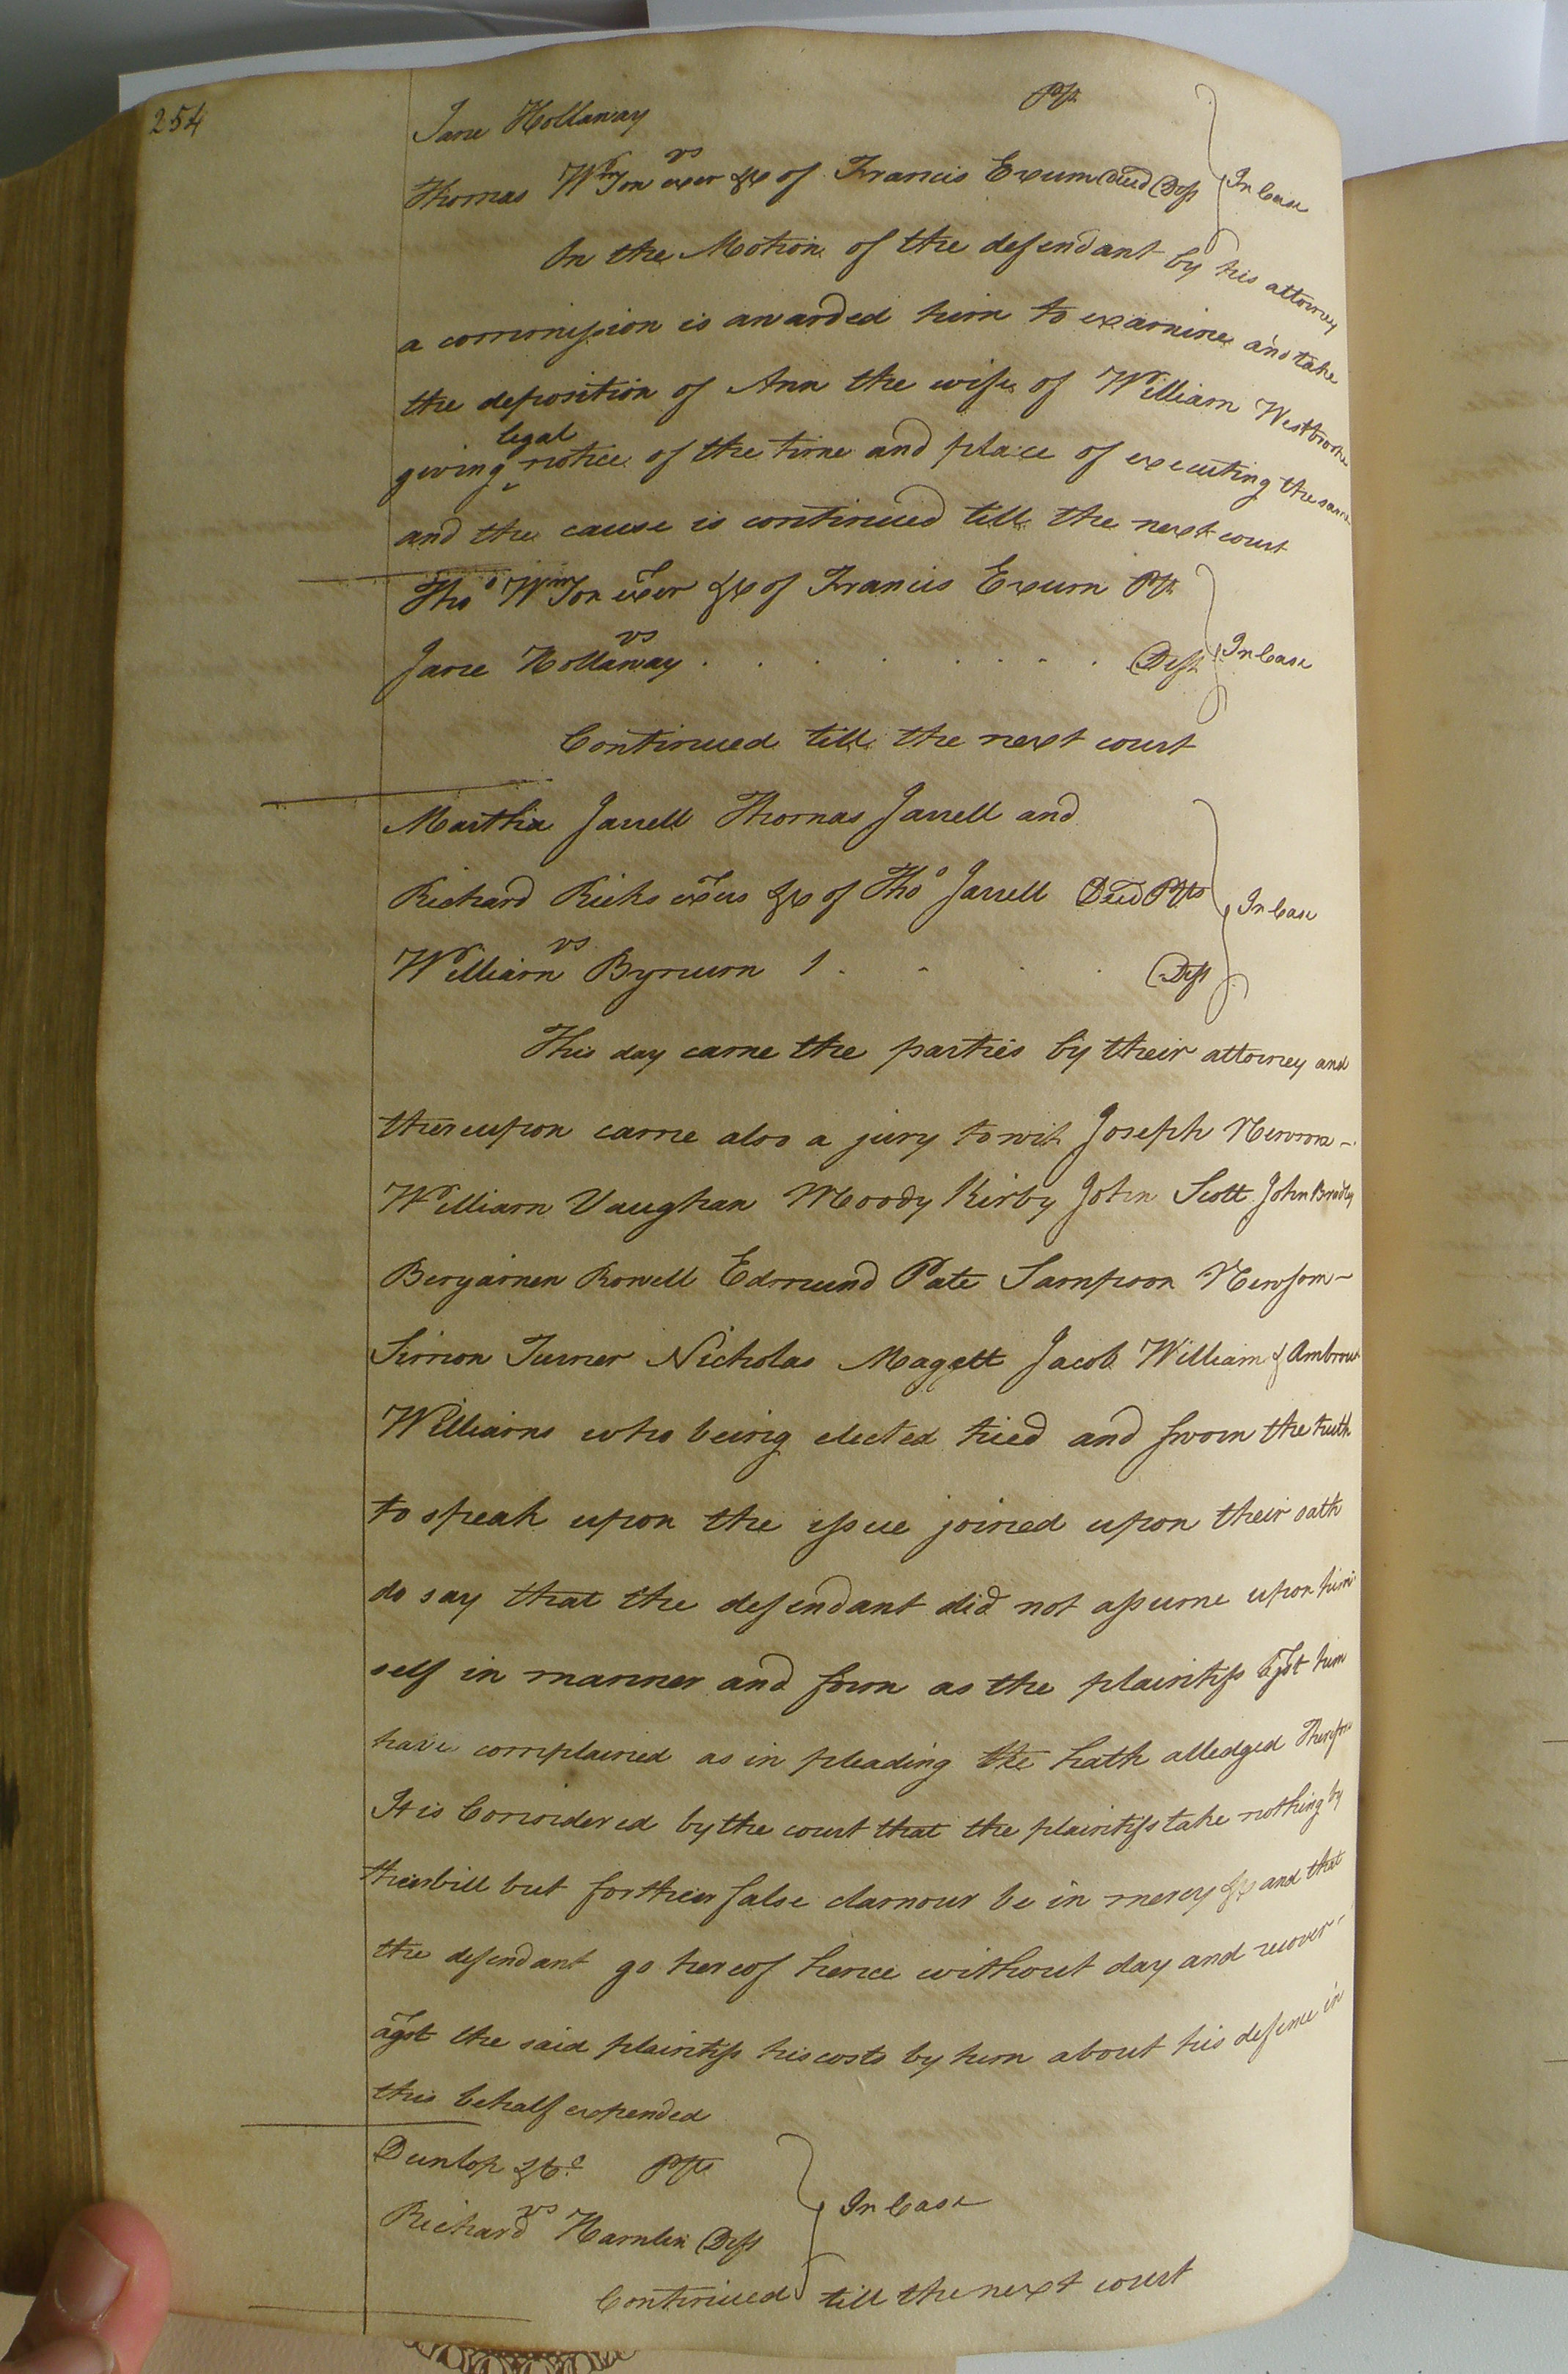 254
Jane Hollaway Plt.
vs
Thomas Wmson exer &c of Francis Exum Decd Deft } In Case
On the Motion of the defendant by his attorney
a commission is awarded him to examine and take
the deposition of Ann the wife of William Westbrooke
giving legal notice of the time and place of executing the same
and the cause is continued till the next court
Thos Wmson exer &c of Francis Exum Plt.
vs
Jane Hollaway . . . . . . . Deft } In Case
Continued till the next court
Martha Jarrell Thomas Jarrell and
Richard Ricks exors &c of Thos Jarrell Decd Plts
vs } In Case
William Bynum . . . . Deft
This day came the parties by their attorney and
thereupon came also a jury towit Joseph Newsom –
William Vaughan Moody Kirby John Scott John Bradley
Benjamen Rowell Edmund Pate Sampson Newsom –
Simon Turner Nicholas Magett Jacob William & Ambrouse
Williams who being elected tried and sworn the truth
to speak upon the issue joined upon their oath
do say that the defendant did not assume upon him
self in manner and form as the plaintiffs agst him
have complained as in pleading the hath alledged Therefore
It is Considered by the court that the plaintiffs take nothing by
their bill but for their false clamour be in mercy &c and that
the defendant go hereof hence without day and recover –
agst the said plaintiffs his costs by him about his defence in
this behalf expended
Dunlop & Co. Plts
vs } In Case
Richard Hamlin Deft
Continued till the next court